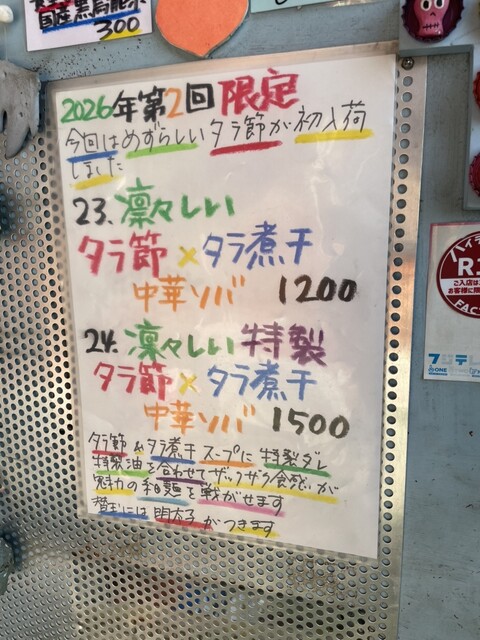 国産黒烏龍茶
300
2026年第2回 限定
今回はめずらしいタラ節が初入荷
しました
23.凛々しい
タラ節×タラ煮干
中華ソバ 1200
24.凛々しい特製
タラ節×タラ煮干
中華ソバ 1500
タラ節&タラ煮干スープに特製ダレ
特製油を合わせてザックザク食感が
魅力の和麺を戦がせます
替玉には明太子がつきます
ご入店は
お客様に限
FAC